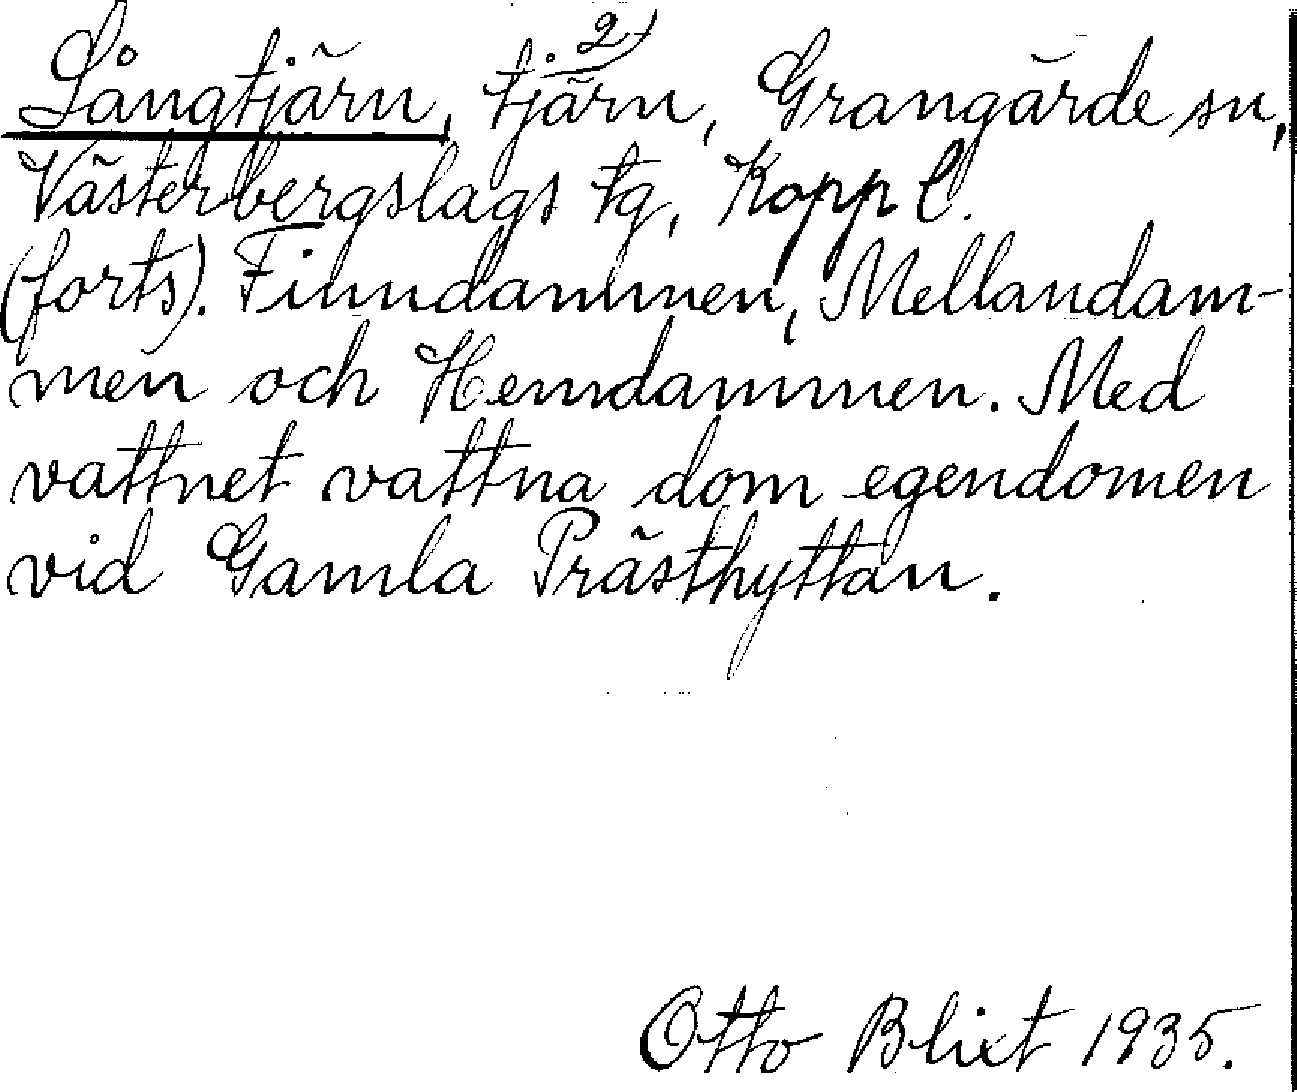 Långtjärn, tjärn, 2) Grangärde sn,
Västerbergslags tg, Kopp l.
(forts). Finndammen, Mellandam-
men och Hemdammen. Med
vattnet vattna dom egendomen
vid Gamla Prästhyttan.
Otto Blixt 1935.